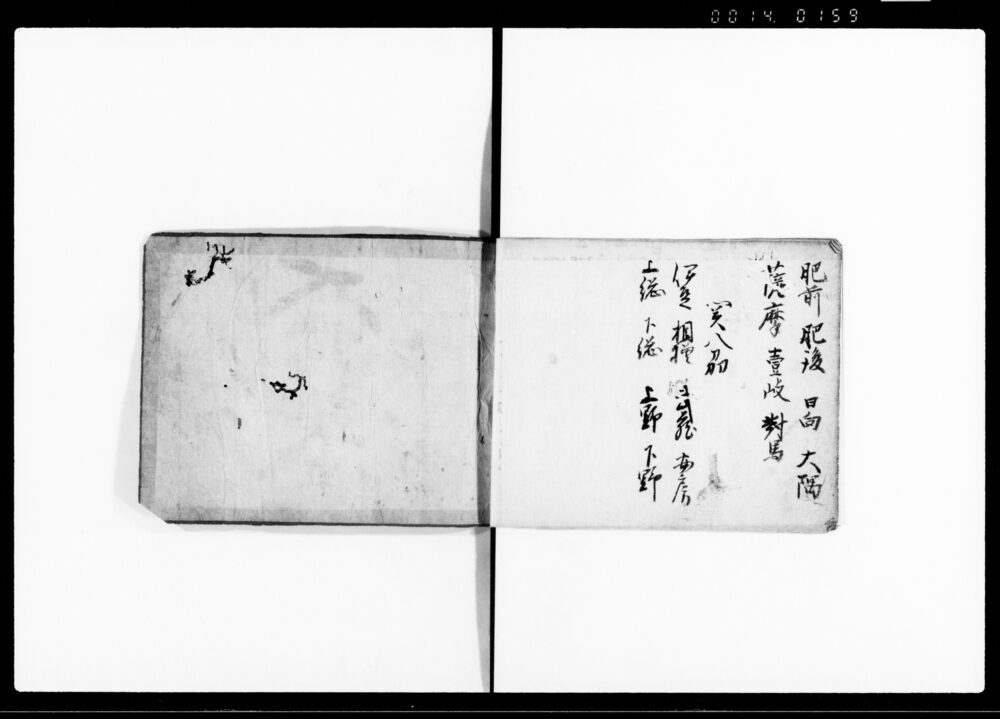 0014 0159
肥前 肥後 日向 大隅
薩摩 壹岐 對馬
関八刕
伊豆 相模 武蔵 安房
上総 下総 上野 下野